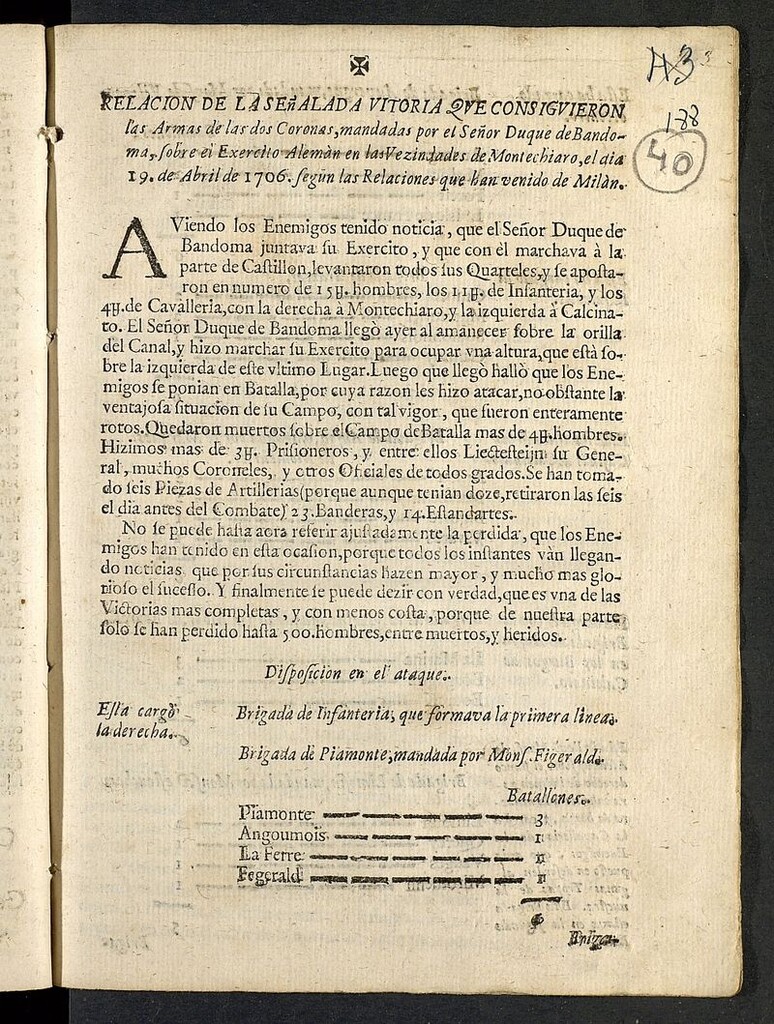 43
3
188
40
RELACION DE LA SEñALADA VITORIA QVE CONSIGVIERON
las Armas de las dos Coronas, mandadas por el Señor Duque de Bando-
ma, sobre el Exercito Alemàn en las Vezindades de Montechiaro, el dia
19. de Abril de 1706. segun las Relaciones que han venido de Milàn.
AViendo los Enemigos tenido noticia, que el Señor Duque de
Bandoma juntava su Exercito, y que con èl marchava à la
parte de Castillon, levantaron todos sus Quarteles, y se aposta-
ron en numero de 15y. hombres, los 11y. de Infanteria, y los
4y. de Cavalleria, con la derecha à Montechiaro, y la izquierda à Calcina-
to. El Señor Duque de Bandoma llegò ayer al amanecer sobre la orilla
del Canal, y hizo marchar su Exercito para ocupar vna altura, que està so-
bre la izquierda de este vltimo Lugar. Luego que llegò hallò que los Ene-
migos se ponian en Batalla, por cuya razon les hizo atacar, no obstante la
ventajosa situacion de su Campo, con tal vigor, que fueron enteramente
rotos. Quedaron muertos sobre el Campo de Batalla mas de 4y. hombres.
Hizimos mas de 3y. Prisioneros, y entre ellos Liectesteijn su Gene-
ral, muchos Coroneles, y otros Oficiales de todos grados. Se han toma-
do seis Piezas de Artillerias (porque aunque tenian doze, retiraron las seis
el dia antes del Combate) 23. Banderas, y 14. Estandartes.
No se puede hasta aora referir ajustadamente la perdida, que los Ene-
migos han tenido en esta ocasion, porque todos los instantes vàn llegan-
do noticias que por sus circunstancias hazen mayor, y mucho mas glo-
rioso el sucesso. Y finalmente se puede dezir con verdad, que es vna de las
Victorias mas completas, y con menos costa, porque de nuestra parte
solo se han perdido hasta 500. hombres, entre muertos, y heridos.
Disposicion en el ataque.
Esta cargò
la derecha.
Brigada de Infanteria, que formava la primera linea.
Brigada de Piamonte, mandada por Mons. Figerald.
Batallones.
Piamonte 3
Angoumois 1
La Ferre 1
Fegerald 1
6
Briga-